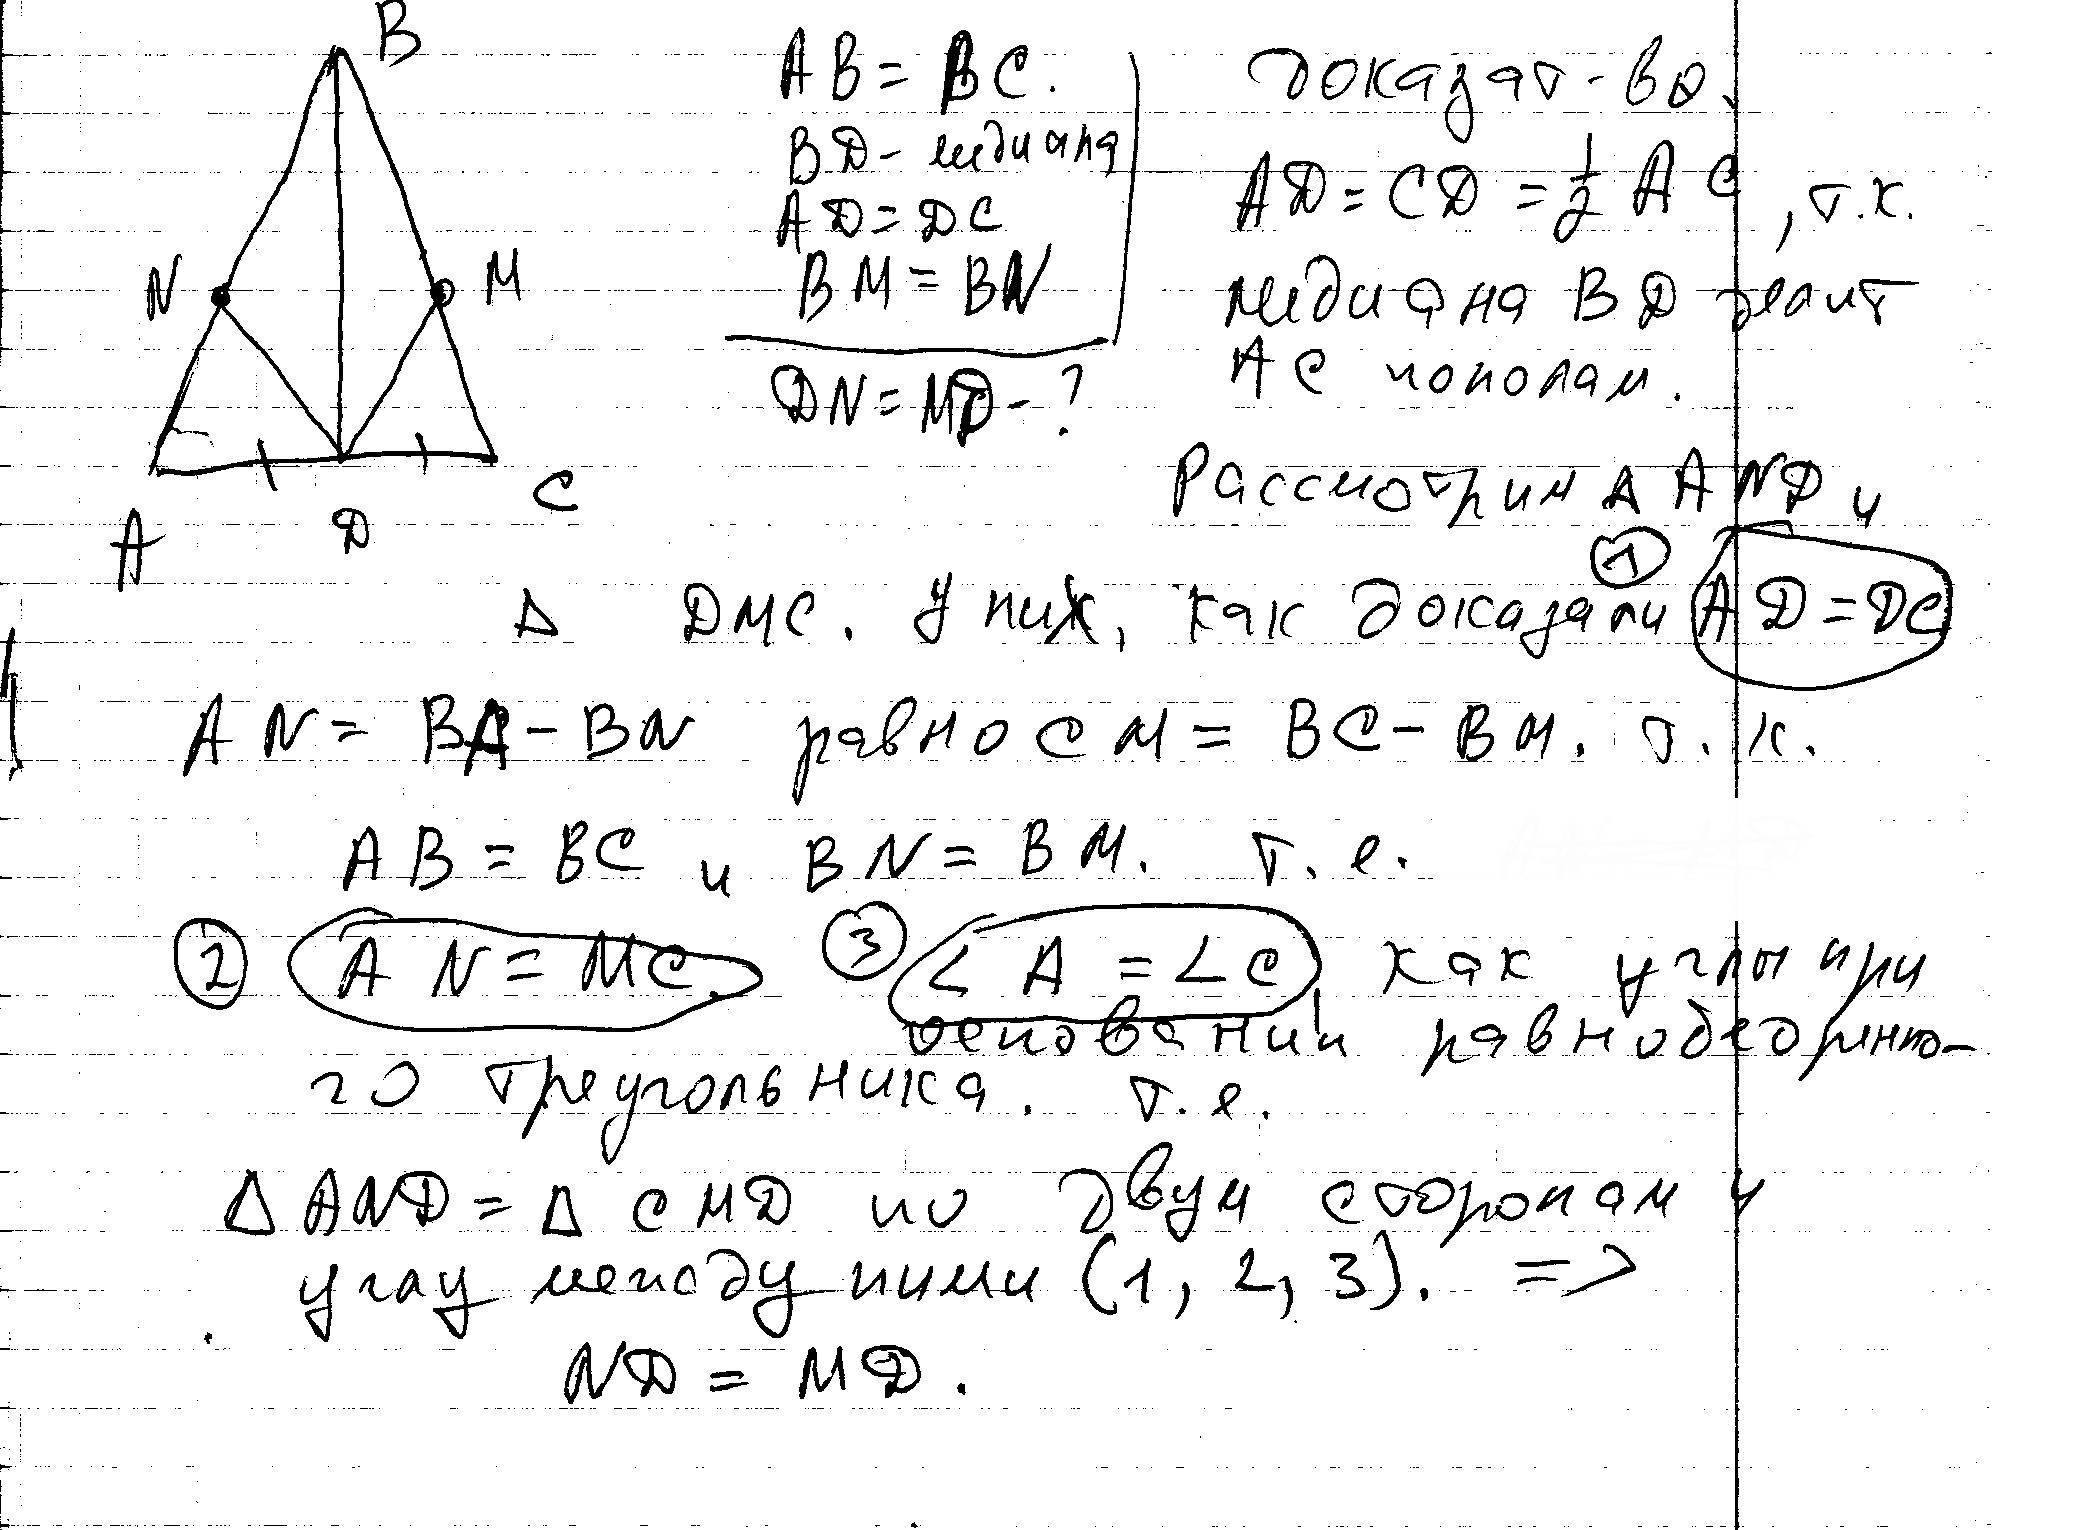 B
N
M
A
D
C
AB = BC.
BD - медиана
AD = DC
BM = BN
DN = MD - ?
Доказат-во.
AD = CD = 1/2 AC, т.к.
медиана BD делит
AC пополам.
Рассмотрим △ AND и
△ DMC. У них, как доказали ① AD = DC
AN = BA - BN равно CM = BC - BM. т.к.
AB = BC и BN = BM. т.е.
② AN = MC. ③ ∠A = ∠C, как углы при
основании равнобедренно-
го треугольника. т.е.
△ AND = △ CMD по двум сторонам и
углу между ними (1, 2, 3). =>
ND = MD.